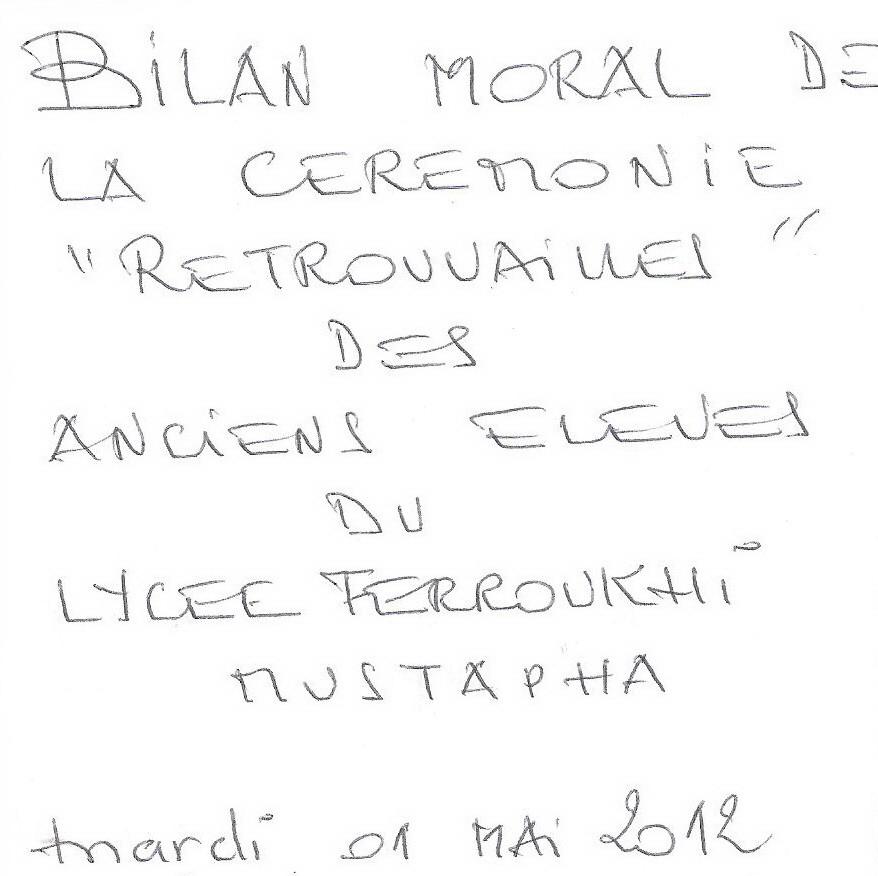 BiLAN MORAL DE
LA CEREMONiE
"RETROUVAiLLES"
DES
ANCiENS ELEVES
DU
LYCEE FERROUKHi
MUSTAPHA
mardi 01 MAi 2012